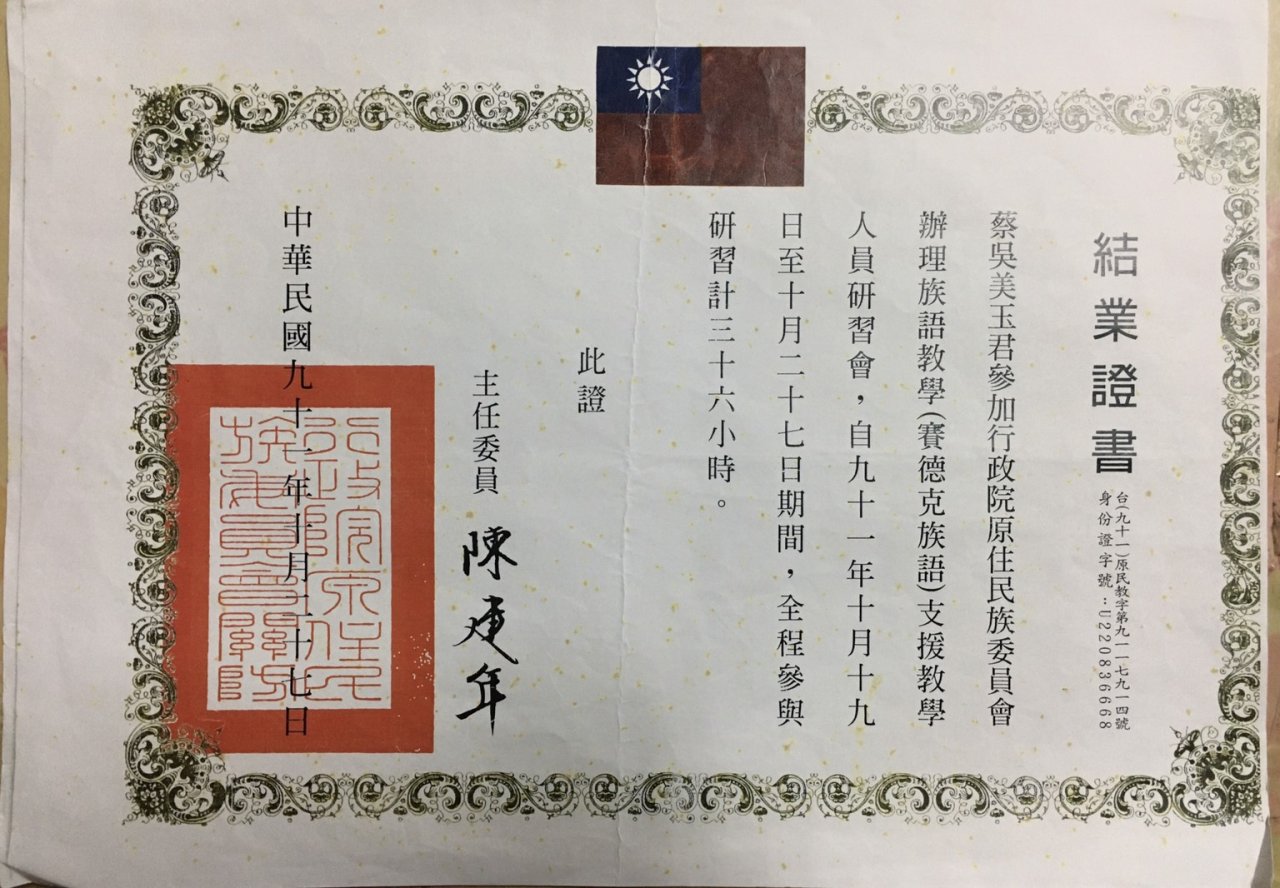 結業證書
台(九十一)原民教字第九一一七九一四號
身份證字號：U220836668
蔡吳美玉君參加行政院原住民族委員會
辦理族語教學(賽德克族語)支援教學
人員研習會，自九十一年十月十九
日至十月二十七日期間，全程參與
研習計三十六小時。
此證
主任委員 陳建年
行政院原住民
族委員會關防
中華民國九十一年十月二十七日